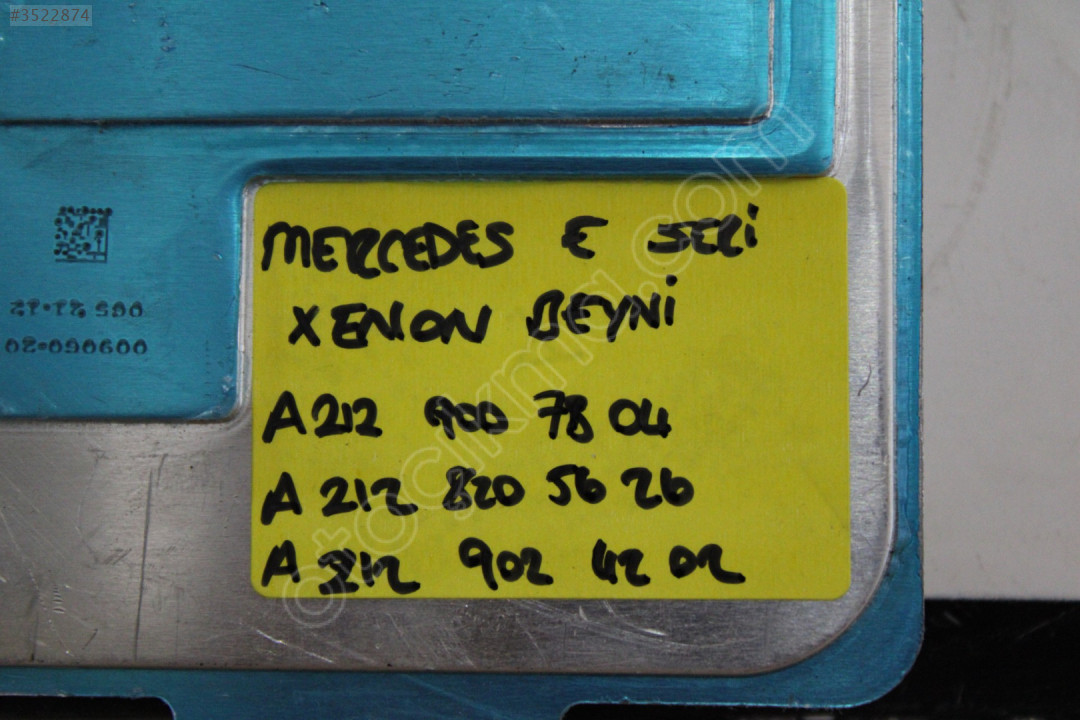 #3522874
MERCEDES E SERİ
XENON BEYNİ
A212 900 78 04
A 212 820 56 26
A 212 902 42 02
otocikma.com